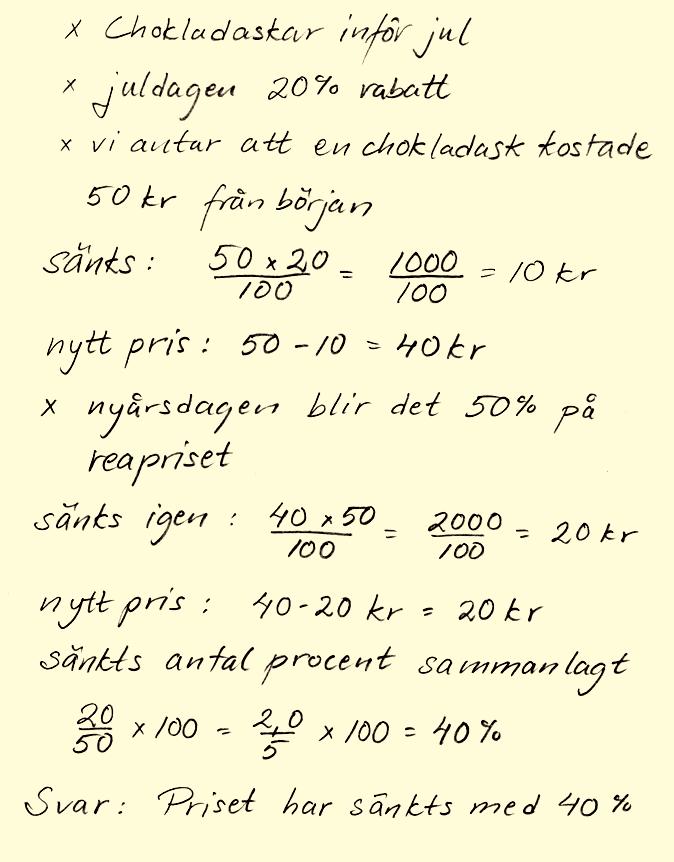 x Chokladaskar inför jul
x juldagen 20% rabatt
x vi antar att en chokladask kostade
50 kr från början
sänkts: 50 x 20 / 100 = 1000 / 100 = 10 kr
nytt pris: 50 - 10 = 40 kr
x nyårsdagen blir det 50% på
reapriset
sänks igen: 40 x 50 / 100 = 2000 / 100 = 20 kr
nytt pris: 40 - 20 kr = 20 kr
sänkts antal procent sammanlagt
20 / 50 x 100 = 2,0 / 5 x 100 = 40%
Svar: Priset har sänkts med 40%